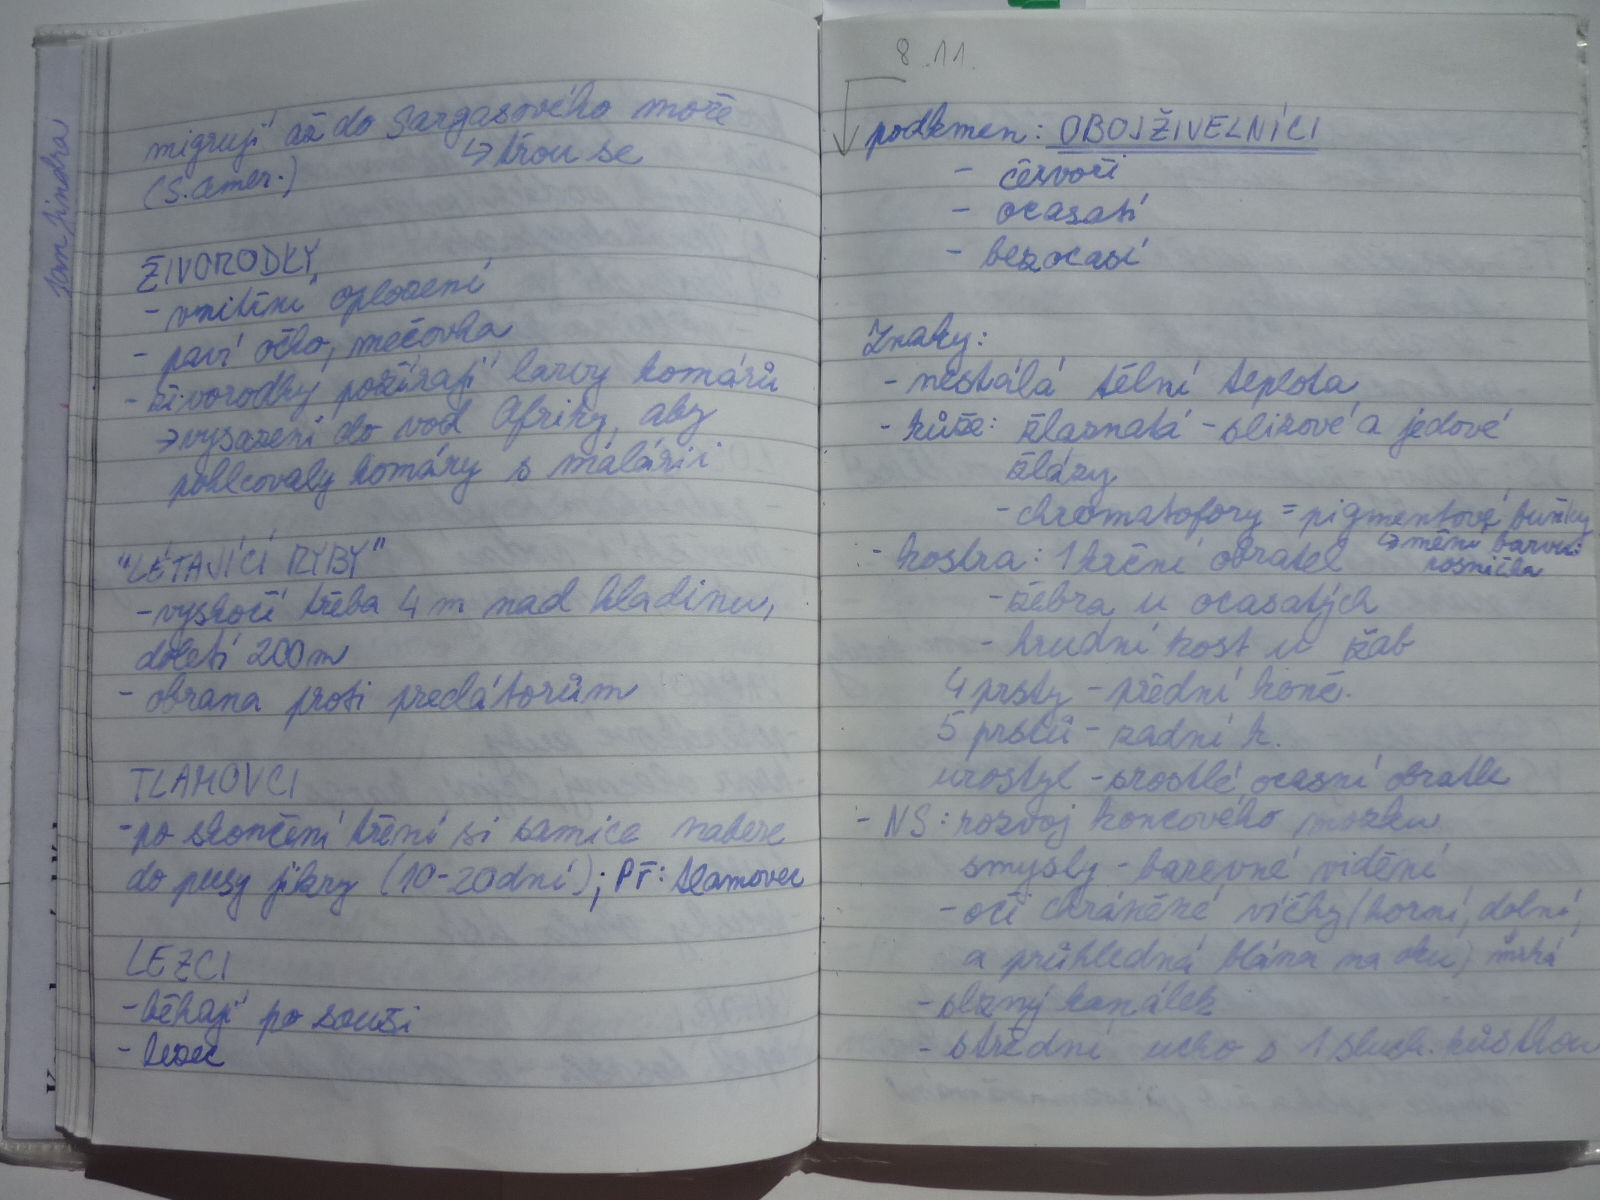 Jan Jindra
migrují až do Sargasového moře
(S. Amer.) ↳ třou se
ŽIVORODKY
- vnitřní oplození
- paví očko, mečovka
- živorodky požírají larvy komárů
→ vysazení do vod Afriky, aby
pohlcovaly komáry s malárií
"LÉTAJÍCÍ RYBY"
- vyskočí třeba 4 m nad hladinu,
doletí 200 m
- obrana proti predátorům
TLAMOVCI
- po skončení tření si samice nabere
do pusy jikry (10-20 dní); PŘ: tlamovec
LEZCI
- běhají po souši
- lezec
8.11.
podkmen: OBOJŽIVELNÍCI
- červoři
- ocasatí
- bezocasí
Znaky:
- nestálá tělní teplota
- kůže: žlaznatá - slizové a jedové
žlázy
- chromatofory = pigmentové buňky
↳ mění barvu:
rosnička
- kostra: 1 krční obratel
- žebra u ocasatých
- hrudní kost u žab
4 prsty - přední konč.
5 prstů - zadní k.
urostyl - srostlé ocasní obratle
- NS: rozvoj koncového mozku
smysly - barevné vidění
- oči chráněné víčky (horní, dolní,
a průhledná blána na oku) mrká
- slzný kanálek
- střední ucho s 1 sluch. kůstkou